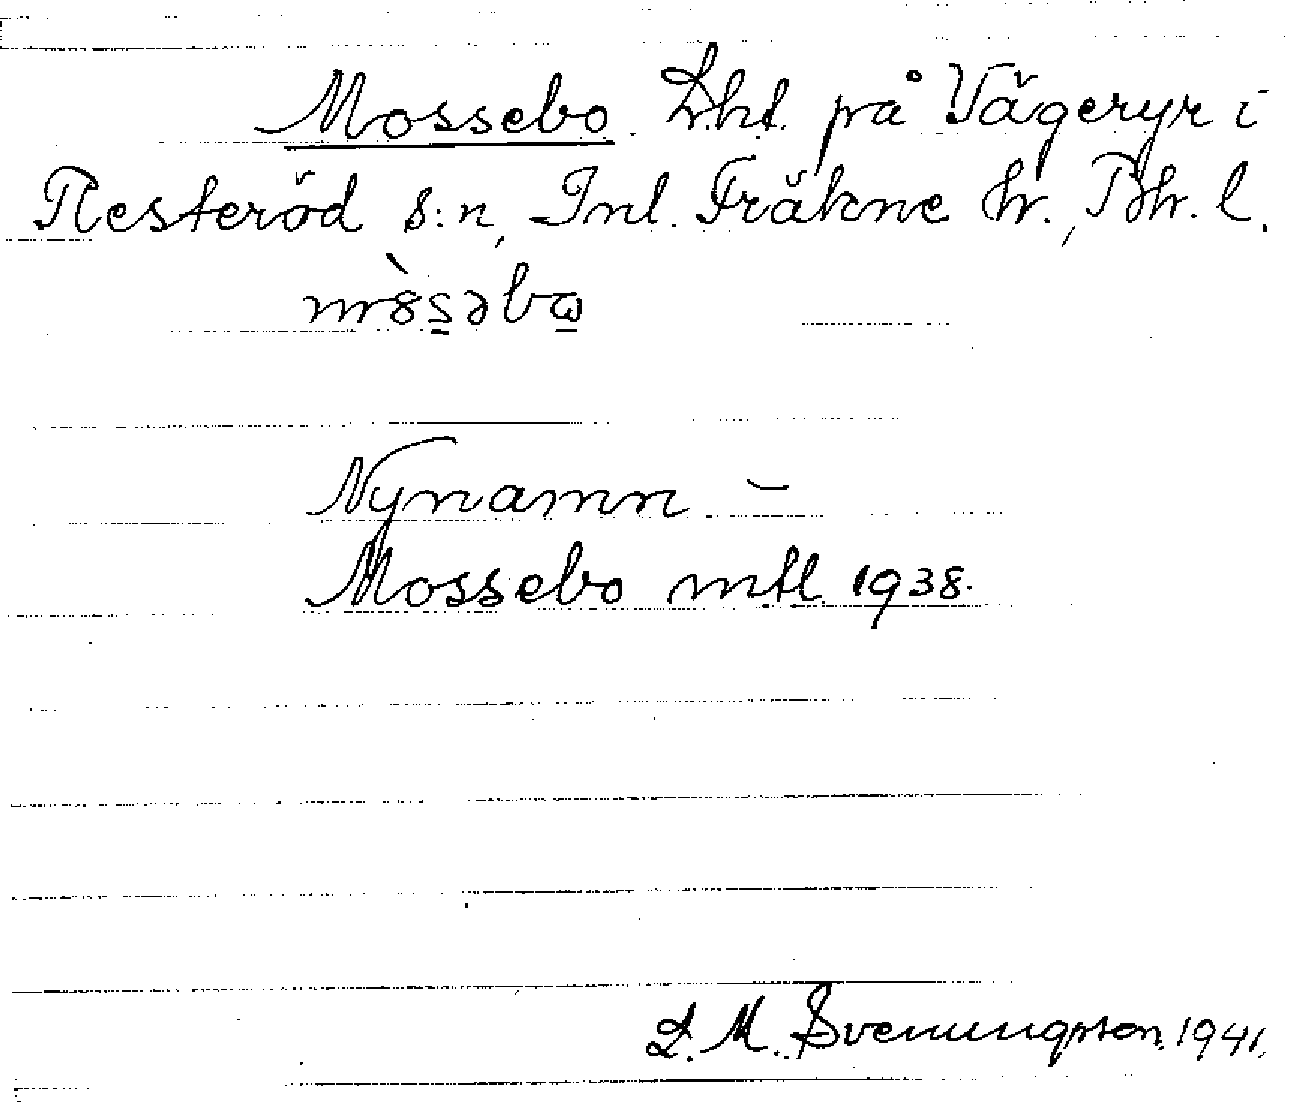 Mossebo. Lht. på Vägeryr i
Resteröd s:n, Inl. Fräkne hr., Bh. l.
mòsəbω
Nynamn –
Mossebo mtl. 1938.
L. M. Svenungsson. 1941.